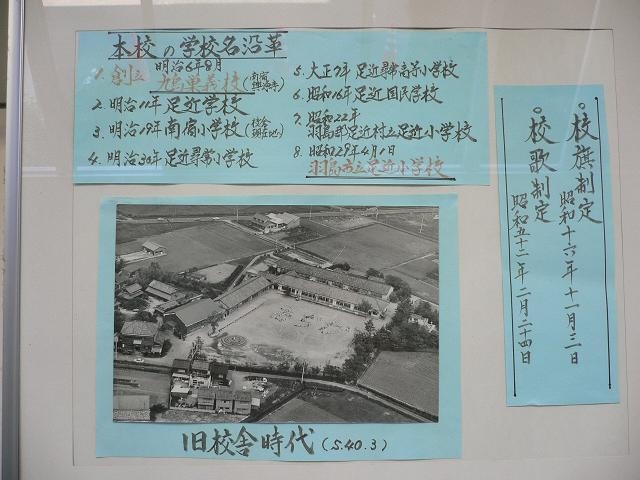 本校の学校名沿革
明治6年8月
1. 創立 鳩巣義校
2. 明治11年 足近学校
3. 明治19年 南宿小学校
4. 明治30年 足近尋常小学校
5. 大正7年 足近尋常高等小学校
6. 昭和16年 足近国民学校
7. 昭和22年
羽島郡足近村立足近小学校
8. 昭和29年4月1日
羽島市立足近小学校
。校旗制定
昭和十六年 十一月三日
。校歌制定
昭和五十二年 二月二十四日
旧校舎時代 (S.40.3)